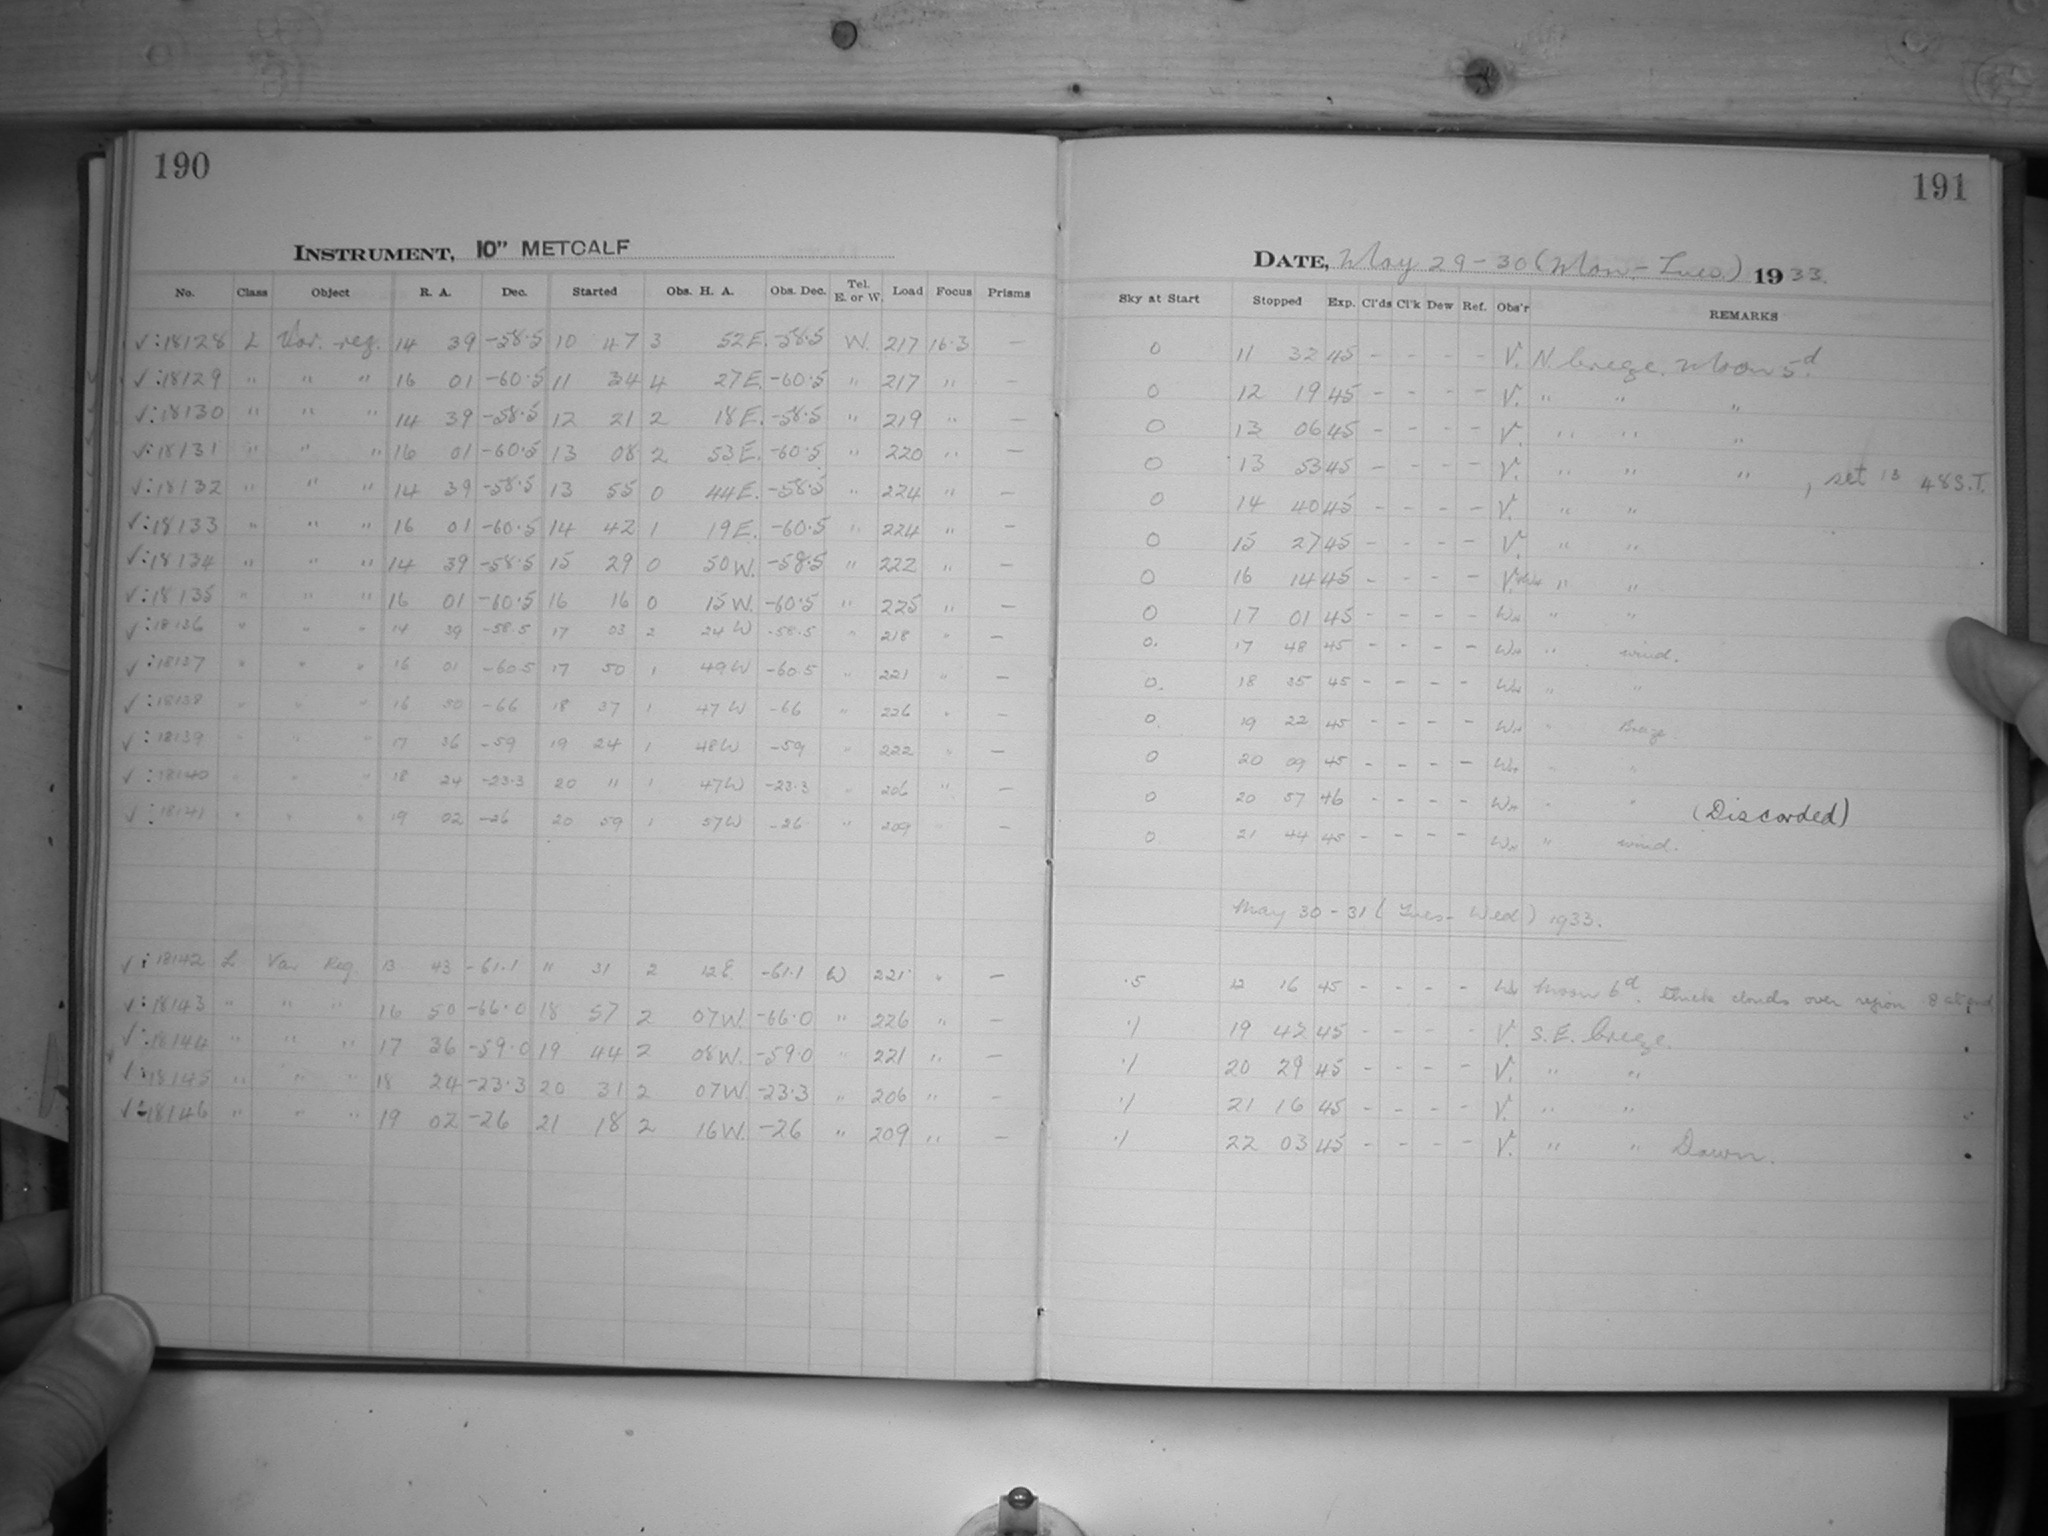 190
INSTRUMENT, 10" METCALF
No. Class Object R. A. Dec. Started Obs. H. A. Obs. Dec. Tel. E. or W. Load Focus Prisms
√:18128 L Var. reg. 14 39 -58.5 10 47 3 52E. -58.5 W. 217 16.3 —
√:18129 " " " 16 01 -60.5 11 34 4 27E. -60.5 " 217 " —
√:18130 " " " 14 39 -58.5 12 21 2 18E. -58.5 " 219 " —
√:18131 " " " 16 01 -60.5 13 08 2 53E. -60.5 " 220 " —
√:18132 " " " 14 39 -58.5 13 55 0 44E. -58.5 " 224 " —
√:18133 " " " 16 01 -60.5 14 42 1 19E. -60.5 " 224 " —
√:18134 " " " 14 39 -58.5 15 29 0 50W. -58.5 " 222 " —
√:18135 " " " 16 01 -60.5 16 16 0 15W. -60.5 " 225 " —
√:18136 " " " 14 39 -58.5 17 03 2 24W -58.5 " 218 " —
√:18137 " " " 16 01 -60.5 17 50 1 49W -60.5 " 221 " —
√:18138 " " " 16 50 -66 18 37 1 47W -66 " 226 " —
√:18139 " " " 17 36 -59 19 24 1 48W -59 " 222 " —
√:18140 " " " 18 24 -23.3 20 11 1 47W -23.3 " 206 " —
√:18141 " " " 19 02 -26 20 59 1 57W -26 " 209 —
√:18142 L Var Reg 13 43 -61.1 11 31 2 12E -61.1 W 221 " —
√:18143 " " " 16 50 -66.0 18 57 2 07W. -66.0 " 226 " —
√:18144 " " " 17 36 -59.0 19 44 2 08W. -59.0 " 221 " —
√:18145 " " " 18 24 -23.3 20 31 2 07W. -23.3 " 206 " —
√:18146 " " " 19 02 -26 21 18 2 16W. -26 " 209 " —
191
DATE, May 29-30 (Mon.-Tues.) 1933.
Sky at Start Stopped Exp. Cl'ds Cl'k Dew Ref. Obs'r REMARKS
0 11 32 45 - - - - V. N. breeze. Moon 5d.
0 12 19 45 - - - - V. " " "
0 13 06 45 - - - - V. " " "
0 13 53 45 - - - - V. " " " , set 13 48 S.T.
0 14 40 45 - - - - V. " "
0 15 27 45 - - - - V. " "
0 16 14 45 - - - - V. " "
0 17 01 45 - - - - " "
0. 17 48 45 - - - - " wind.
0. 18 35 45 - - - - " "
0. 19 22 45 - - - - " Breeze.
0 20 09 45 - - - - " "
0 20 57 46 - - - - " " (Discarded)
0 21 44 45 - - - - " wind.
May 30-31 (Tues-Wed) 1933.
.5 12 16 45 - - - - Moon 6d. thick clouds over region at end
.1 19 42 45 - - - - V. S.E. breeze.
.1 20 29 45 - - - - V. " "
.1 21 16 45 - - - - V. " "
.1 22 03 45 - - - - V. " " Dawn.